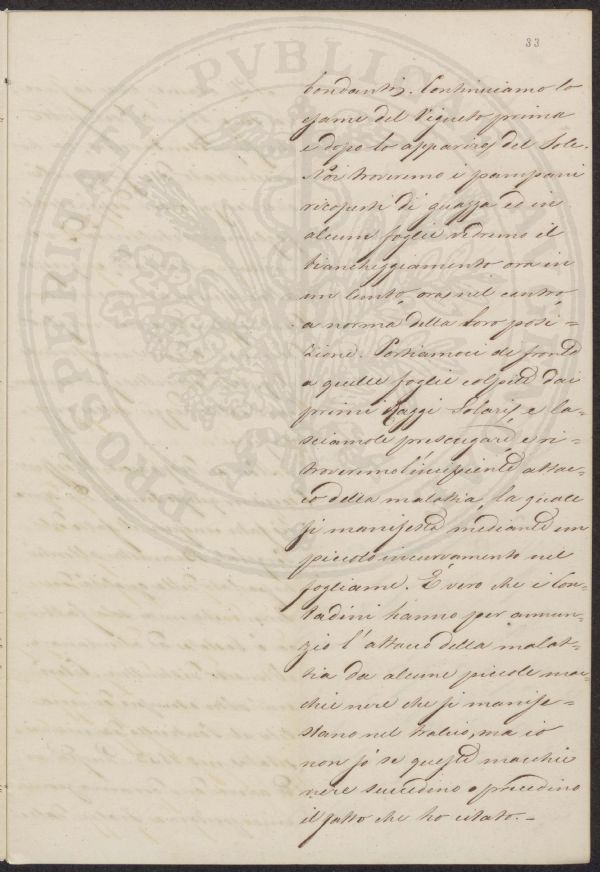 33
bondanti. Continuiamo lo
esame del Vigneto prima
e dopo lo apparire del Sole.
Noi troveremo i pampani
ricoperti di guazza ed in
alcune foglie vedremo il
biancheggiamento ora in
un lembo, ora nel centro
a norma della loro posi=
zione. Portiamoci di fronte
a quelle foglie colpite dai
primi Raggi Solari, e la=
sciamole prosciugare e ri=
troveremo l'incipiente attac=
co della malattia, la quale
si manifesta mediante un
piccolo incurvamento nel
fogliame. È vero che i Con=
tadini hanno per annun=
zio l'attacco della malat=
tia da alcune piccole mac=
chie nere che si manife=
stano nel tralcio, ma io
non so se queste macchie
nere succedino o precedino
il fatto che ho citato. =
PROSPERITATI PVBLICAE